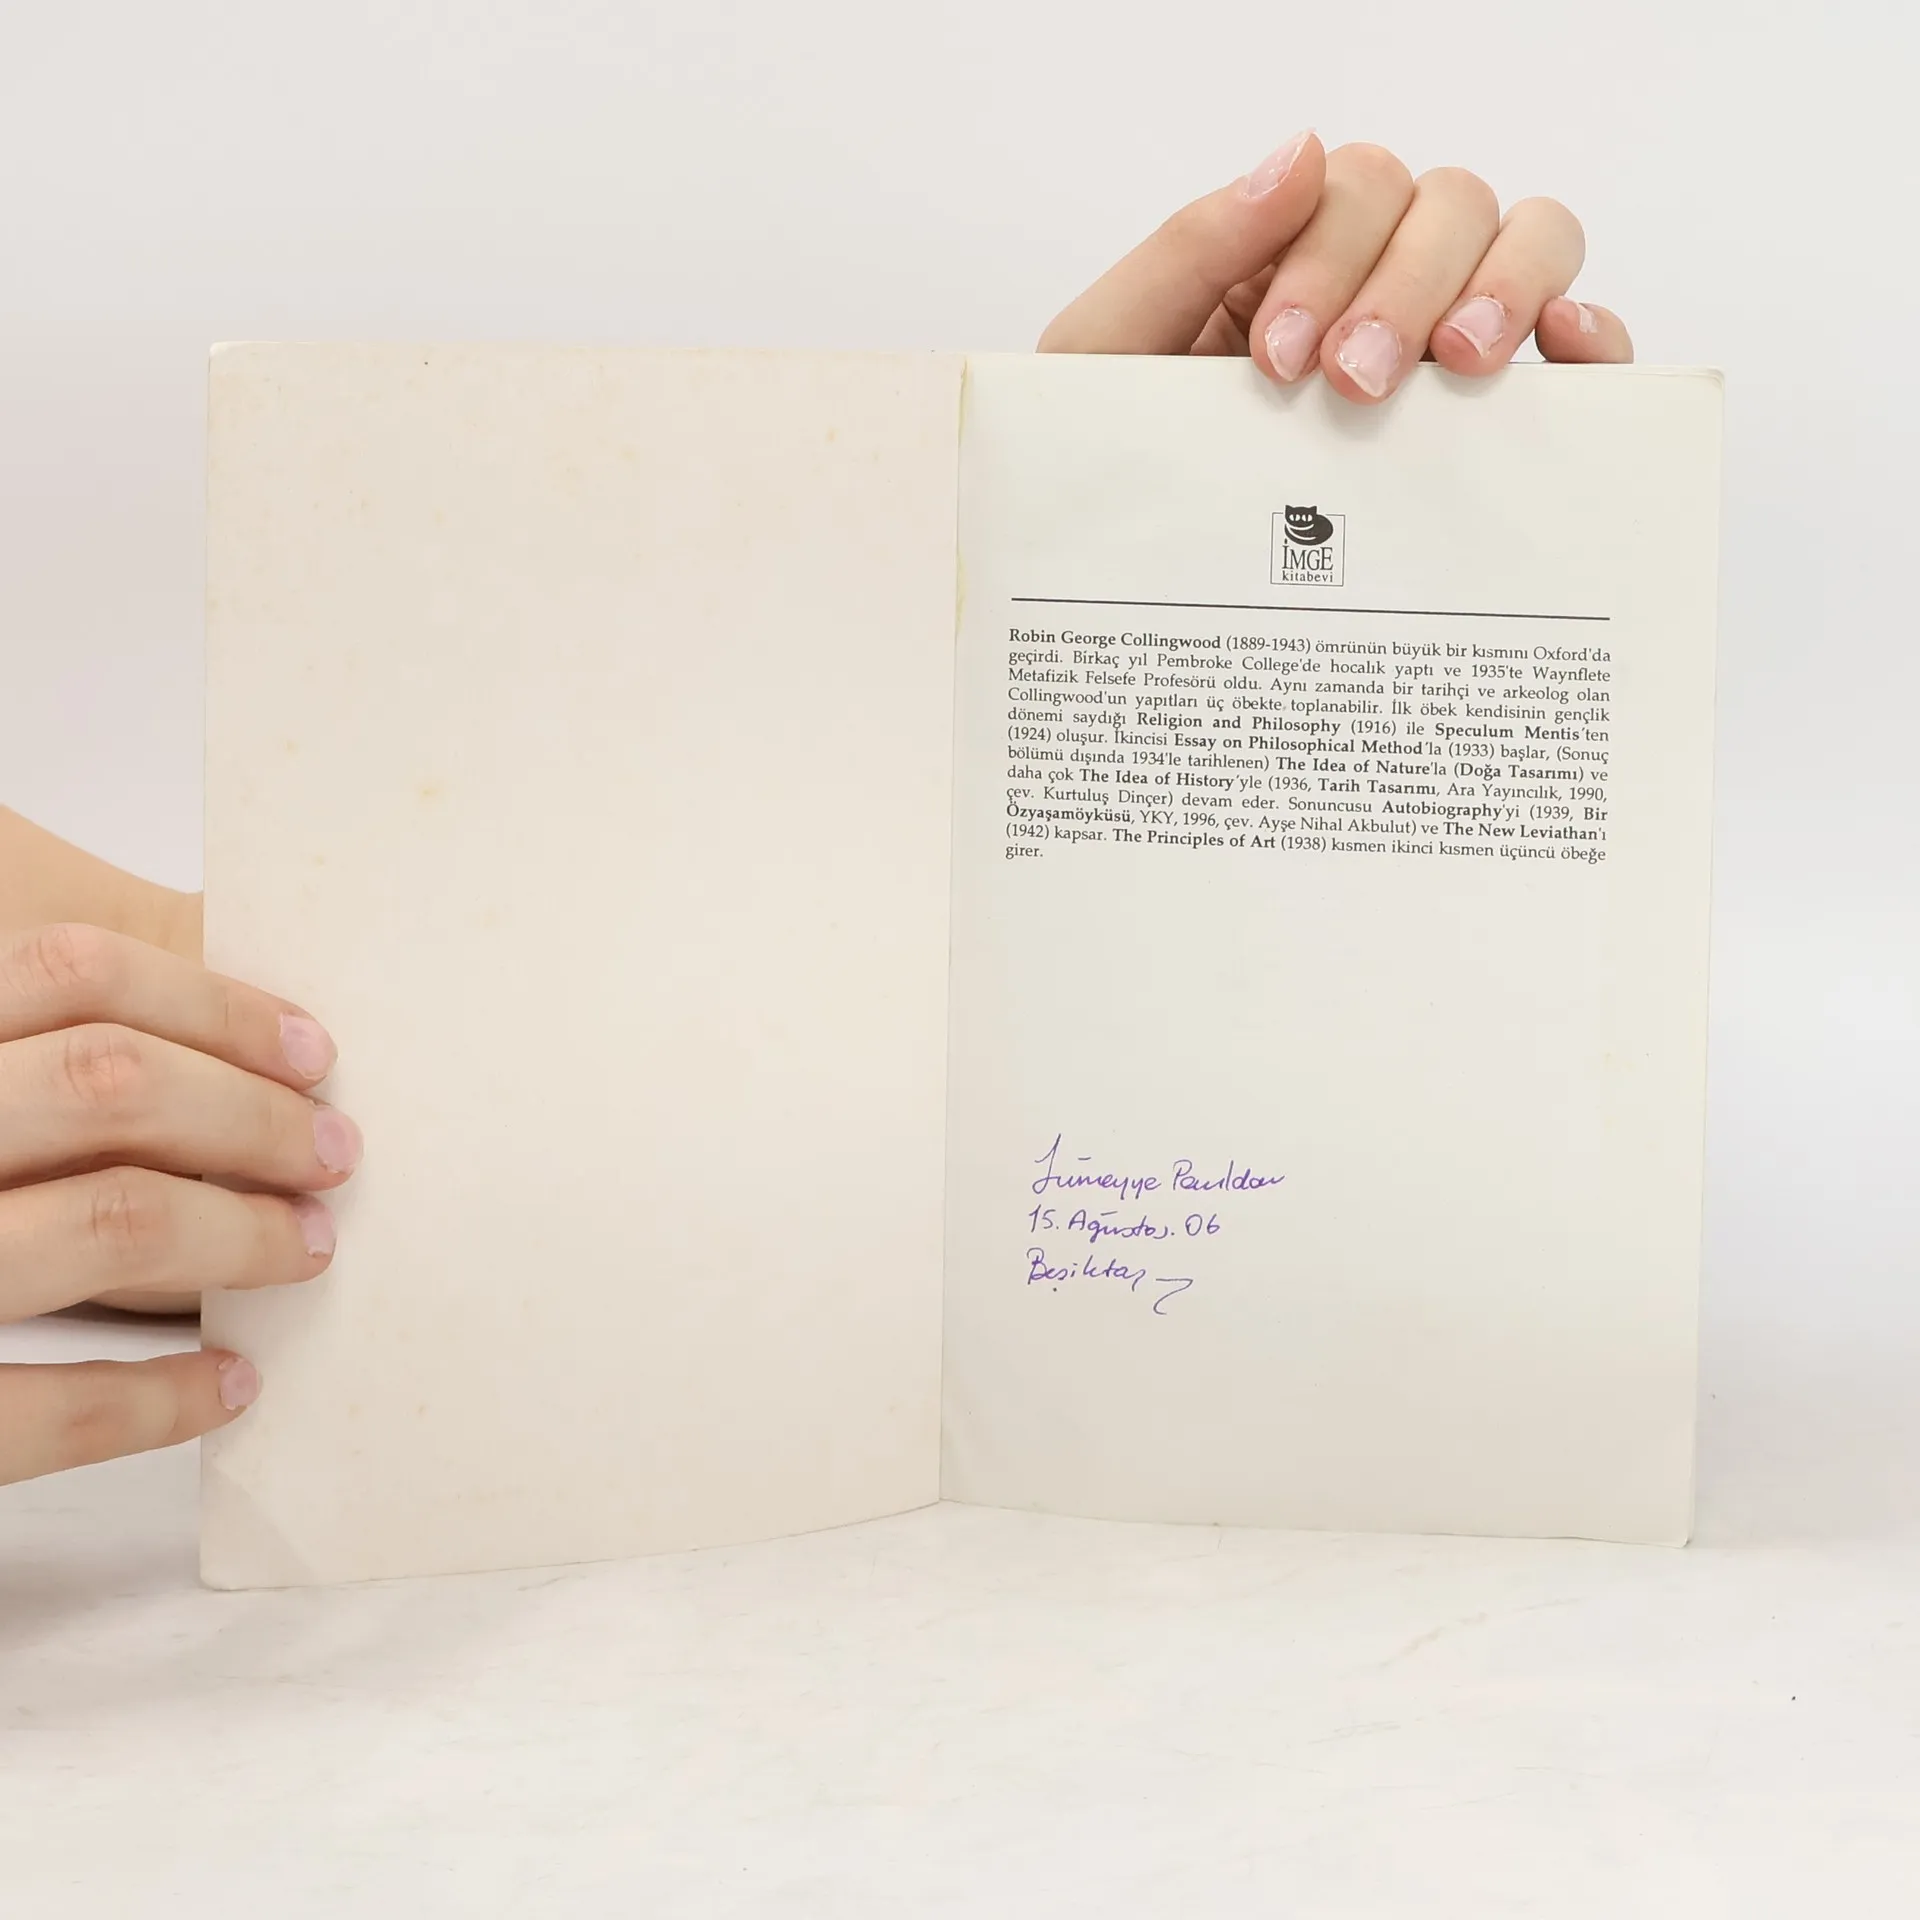 İMGE
kitabevi
Robin George Collingwood (1889-1943) ömrünün büyük bir kısmını Oxford'da
geçirdi. Birkaç yıl Pembroke College'de hocalık yaptı ve 1935'te Waynflete
Metafizik Felsefe Profesörü oldu. Aynı zamanda bir tarihçi ve arkeolog olan
Collingwood'un yapıtları üç öbekte toplanabilir. İlk öbek kendisinin gençlik
dönemi saydığı Religion and Philosophy (1916) ile Speculum Mentis'ten
(1924) oluşur. İkincisi Essay on Philosophical Method'la (1933) başlar, (Sonuç
bölümü dışında 1934'le tarihlenen) The Idea of Nature'la (Doğa Tasarımı) ve
daha çok The Idea of History'yle (1936, Tarih Tasarımı, Ara Yayıncılık, 1990,
çev. Kurtuluş Dinçer) devam eder. Sonuncusu Autobiography'yi (1939, Bir
Özyaşamöyküsü, YKY, 1996, çev. Ayşe Nihal Akbulut) ve The New Leviathan'ı
(1942) kapsar. The Principles of Art (1938) kısmen ikinci kısmen üçüncü öbeğe
girer.
Sümeyye
15. Ağustos. 06
Beşiktaş